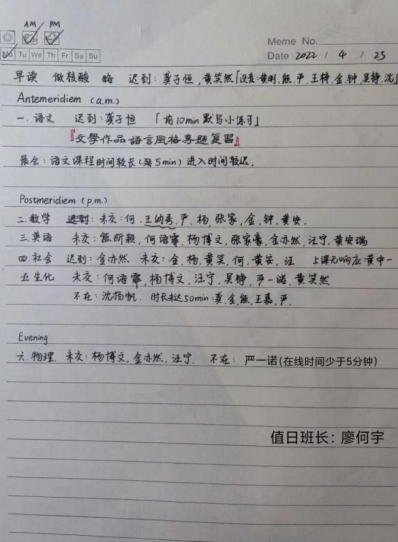 AM PM
Meme No.
Mo Tu We Th Fr Sa Su
Date 2022 / 4 / 25
早读 做核酸 略 迟到:莫子恒,黄笑然「没查:黄明,熊,严,王梓,金,钟,吴铮,沈」
Antemeridiem (a.m.)
一.语文 迟到:莫子恒 「前10min默写小练习」
『文學作品語言風格專題复習』
晨会:语文课程时间较长(超5min)进入时间较迟.
Postmeridiem (p.m.)
二.数学 迟到:未交:何,王的秀,严,杨 张家,金,钟,黄安.
三.英语 未交:熊,何语霏 杨博文,张家豪,金亦然,汪宁,黄安瑞
四.社会 迟到:金亦然 未交:金,杨,黄笑,何,黄安,汪 上课无响应:黄中一
五.生化 未交:何语霏,杨博文,汪宁,吴铮,严一诺,黄笑然
不在:沈扬帆. 时长未达50min:莫,金,熊,王,严.
Evening
六.物理. 未交:杨博文,金亦然,汪宁. 不在: 严一诺(在线时间少于5分钟)
值日班长:廖何宇